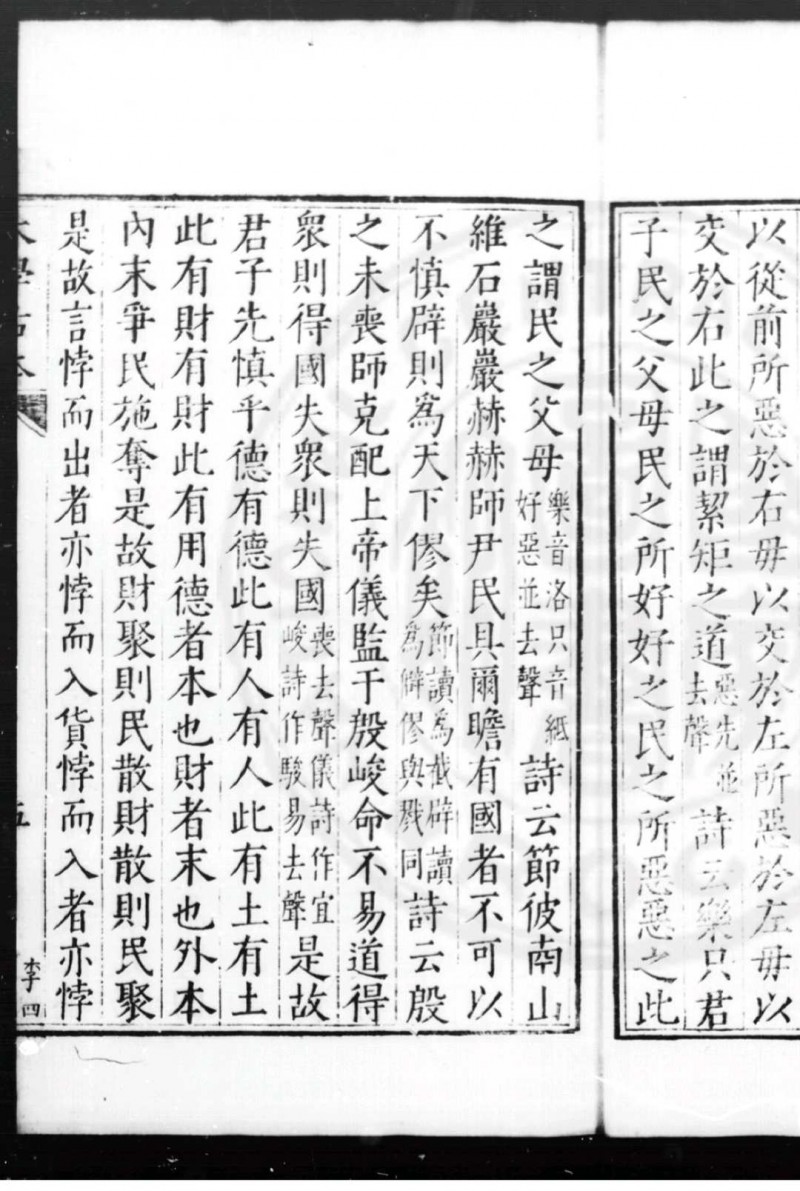 以從前所惡於右毋以交於左所惡於左毋以
交於右此之謂絜矩之道惡先並去聲詩云樂只君
子民之父母民之所好好之民之所惡惡之此
之謂民之父母樂音洛只音紙好惡並去聲詩云節彼南山
維石巖巖赫赫師尹民具爾瞻有國者不可以
不慎辟則為天下僇矣節讀為截辟讀為僻僇與戮同詩云殷
之未喪師克配上帝儀監于殷峻命不易道得
衆則得國失衆則失國喪去聲儀詩作宜峻詩作駿易去聲是故
君子先慎乎德有德此有人有人此有土有土
此有財有財此有用德者本也財者末也外本
內末爭民施奪是故財聚則民散財散則民聚
是故言悖而出者亦悖而入貨悖而入者亦悖
大學古本
五
李四